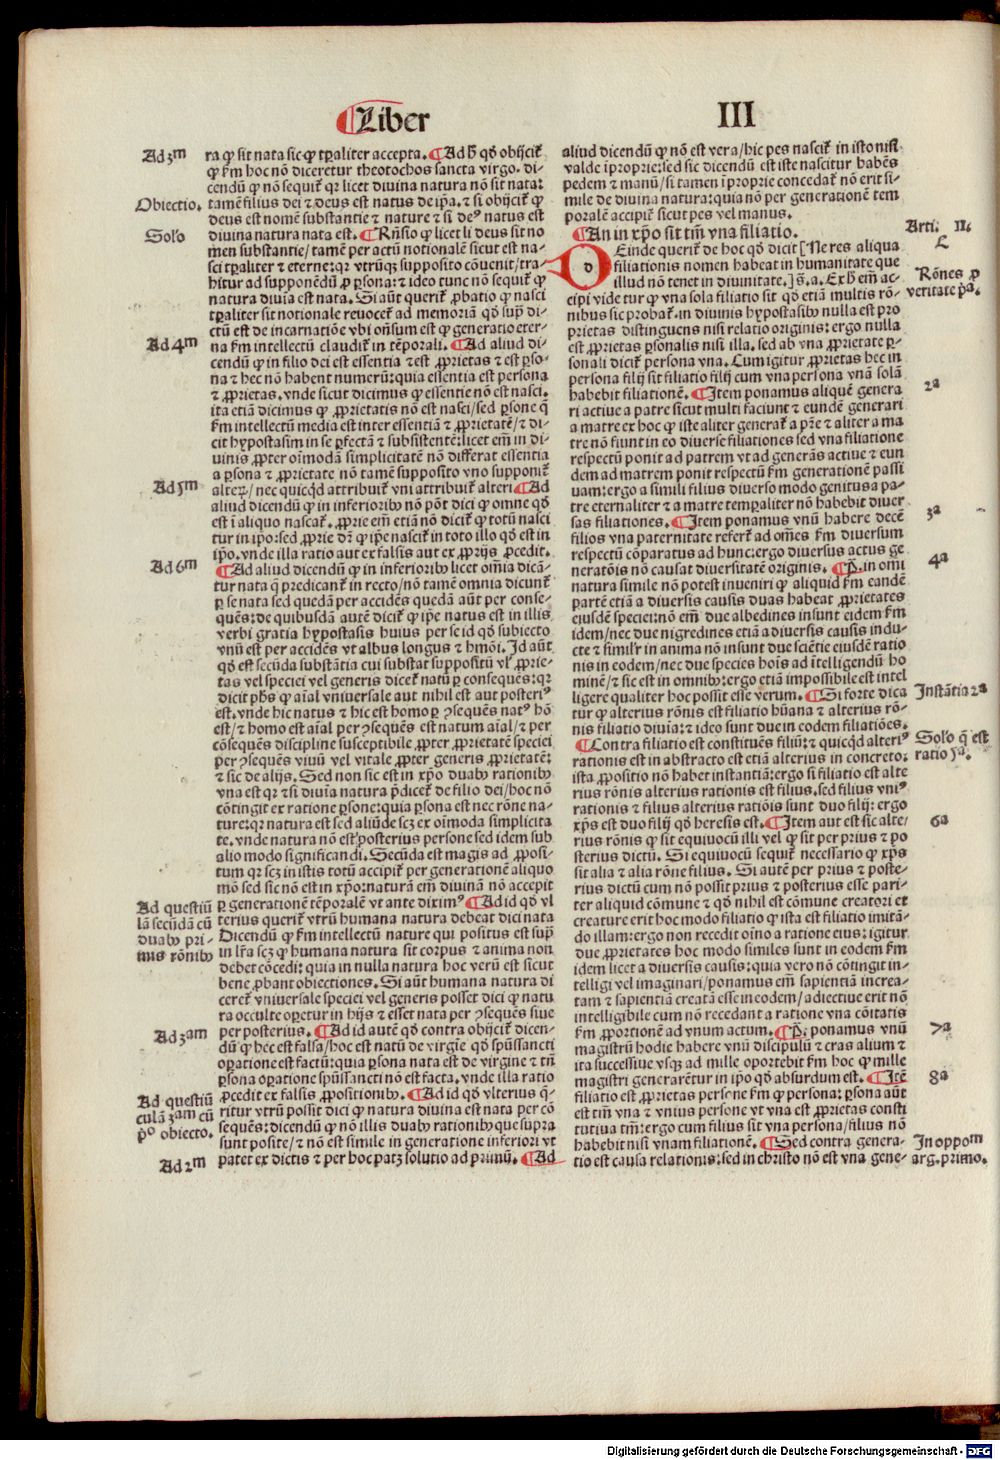 Liber
III
Ad 3m
Obiectio.
Solo
Ad 4m
Ad 5m
Ad 6m
Ad questiū
lā secūdā cū
duabꝰ pri-
mis rōnibꝰ
Ad 3am
Ad questiū
culā 3am cū
p̄o obiecto.
Ad 2m
ra ꝙ sit nata sic ꝙ tp̄aliter accepta. ¶Ad h̄ qđ obijcit̄
ꝙ ẜm hoc nō diceretur theotochos sancta virgo. di-
cendū ꝙ nō sequit̄ qꝛ licet diuina natura nō sit nata:
tamē filius dei ⁊ deus est natus de ip̄a. ⁊ si obijcit̄ ꝙ
deus est nomē substantie ⁊ nature ⁊ si deꝰ natus est
diuina natura nata est. ¶Rn̄sio ꝙ licet li deus sit no
men substantie/ tamē per actū notionale sicut est na-
sci tp̄aliter ⁊ eterne: qꝛ vtrūqꝫ supposito cōuenit/ tra-
hitur ad supponēdū ꝓ ꝑsona: ⁊ ideo tunc nō sequit̄ ꝙ
natura diuīa est nata. Si aūt querit̄ ꝓbatio ꝙ nasci
tp̄aliter sit notionale reuocet̄ ad memoriā qđ sup̄ di-
ctū est de incarnatiōe vbi oñsum est ꝙ generatio eter-
na ẜm intellectū claudit̄ in tēporali. ¶Ad aliud di-
cendū ꝙ in filio dei est essentia ⁊ est ꝓprietas ⁊ est ꝑso-
na ⁊ hec nō habent numerū: quia essentia est persona
⁊ ꝓprietas. vnde sicut dicimus ꝙ essentie nō est nasci.
ita etiā dicimus ꝙ ꝓprietatis nō est nasci/ sed ꝑsone q̄
ẜm intellectū media est inter essentiā ⁊ ꝓprietatē/ ⁊ di-
cit hypostasim in se ꝑfectā ⁊ subsistentē: licet em̄ in di-
uinis ꝓpter oīmodā simplicitatē nō differat essentia
a ꝑsona ⁊ ꝓprietate nō tamē supposito vno supponit̄
alteꝝ/ nec quicqđ attribuit̄ vni attribuit̄ alteri ¶Ad
aliud dicendū ꝙ in inferioribꝰ nō pōt dici ꝙ omne qđ
est ī aliquo nascat̄. ꝓprie em̄ etiā nō dicit̄ ꝙ totū nasci
tur in ip̄o: sed ꝓprie dr̄ ꝙ ip̄e nascit̄ in toto illo qđ est in
ip̄o. vnde illa ratio aut ex falsis aut ex ꝓprijs ꝓcedit.
¶Ad aliud dicendū ꝙ in inferioribꝰ licet omīa dicā-
tur nata q̄ predicant̄ in recto/ nō tamē omnia dicunt̄
ꝑ se nata sed quedā per accidēs quedā aūt per conse-
quēs: de quibusdā autē dicit̄ ꝙ ip̄e natus est in illis
verbi gratia hypostasis huius per se id qđ subiecto
vnū est per accidēs vt albus longus ⁊ hmōi. Id aūt
qđ est secūda substātia cui substat suppositū vl̓ ꝓprie-
tas vel speciei vel generis dicet̄ natū ꝑ consequēs: qꝛ
dicit ph̄s ꝙ aīal vniuersale aut nihil est aut posteriꝰ
est. vnde hic natus ⁊ hic est homo ꝑ ꝯsequēs natꝰ hō
est/ ⁊ homo est aīal per ꝯsequēs est natum aīal/ ⁊ per
cōsequēs discipline susceptibile ꝓpter ꝓprietatē speciei
per ꝯsequēs viuū vel vitale ꝓpter generis ꝓprietatē:
⁊ sic de alijs. Sed non sic est in xp̄o duabꝰ rationibꝰ
vna est qꝛ ⁊ si diuīa natura p̄dicet̄ de filio dei/ hoc nō
cōtingit ex ratione ꝑsone: quia ꝑsona est nec rōne na-
ture: qꝛ natura est sed aliūde scꝫ ex oīmoda simplicita
te. vnde natura nō est posterius persone sed idem sub
alio modo significandi. Secūda est magis ad ꝓposi-
tum qꝛ scꝫ in istis totū accipit̄ per generationē aliquo
mō sed sic nō est in xp̄o: naturā em̄ diuinā nō accepit
ꝑ generationē tēporalē vt ante diximꝰ ¶Ad id qđ vl
terius querit̄ vtrū humana natura debeat dici nata
Dicendū ꝙ ẜm intellectū nature qui positus est sup̄
in lr̄a scꝫ ꝙ humana natura sit corpus ⁊ anima non
debet cōcedi: quia in nulla natura hoc verū est sicut
bene ꝓbant obiectiones. Si aūt humana natura di
ceret̄ vniuersale speciei vel generis posset dici ꝙ natu
ra occulte oꝑetur in hijs ⁊ esset nata per ꝯsequēs siue
per posterius. ¶Ad id autē qđ contra obijcit̄ dicen-
dū ꝙ hec est falsa/ hoc est natū de virgīe qđ spūssancti
oꝑatione est factū: quia ꝑsona nata est de virgine ⁊ tn̄
ꝑsona oꝑatione spūssancti nō est facta. vnde illa ratio
ꝓcedit ex falsis ꝓpositionibꝰ. ¶Ad id qđ vlterius q̄-
ritur vtrū possit dici ꝙ natura diuina est nata per cō
sequēs: dicendū ꝙ nō illis duabꝰ rationibꝰ que supra
sunt posite/ ⁊ nō est simile in generatione inferiori vt
patet ex dictis ⁊ per hoc patꝫ solutio ad primū. ¶Ad
aliud dicendū ꝙ nō est vera/ hic pes nascit̄ in isto nisi
valde īproprie: sed sic dicendū est iste nascitur habēs
pedem ⁊ manū/ si tamen īproprie concedat̄ nō erit si-
mile de diuina natura: quia nō per generationē tem
poralē accipit̄ sicut pes vel manus.
¶An in xp̄o sit tm̄ vna filiatio.
DEinde querit̄ de hoc qđ dicit [Ne res aliqua
filiationis nomen habeat in humanitate que
illud nō tenet in diuinitate.] §. a. Ex h̄ em̄ ac-
cipi videtur ꝙ vna sola filiatio sit qđ etiā multis rō-
nibus sic probat̄. in diuinis hypostasibꝰ nulla est pro
prietas distinguens nisi relatio originis: ergo nulla
est ꝓprietas ꝑsonalis nisi illa. sed ab vna ꝓprietate ꝑ-
sonali dicit̄ persona vna. Cum igitur ꝓprietas hec in
persona filij sit filiatio filij cum vna persona vnā solā
habebit filiationē. ¶Item ponamus aliquē genera
ri actiue a patre sicut multi faciunt ⁊ eundē generari
a matre ex hoc ꝙ iste aliter generat̄ a pr̄e ⁊ aliter a ma
tre nō fiunt in eo diuerse filiationes sed vna filiatione
respectū ponit ad patrem vt ad generās actiue ⁊ eun
dem ad matrem ponit respectū ẜm generationē passi
uam: ergo a simili filius diuerso modo genitus a pa-
tre eternaliter ⁊ a matre temꝑaliter nō habebit diuer
sas filiationes. ¶Item ponamus vnū habere decē
filios vna paternitate refert̄ ad omēs ẜm diuersum
respectū cōparatus ad hunc: ergo diuersus actus ge
neratōis nō causat diuersitatē originis. ¶P̄. in omi
natura simile nō potest inueniri ꝙ aliquid ẜm eandē
partē etiā a diuersis causis duas habeat ꝓprietates
eiusdē speciei: nō em̄ due albedines insunt eidem ẜm
idem/ nec due nigredines etiā a diuersis causis indu-
cte ⁊ similr̄ in anima nō insunt due sciētie eiusdē ratio
nis in eodem/ nec due species hoīs ad ītelligendū ho
minē/ ⁊ sic est in omnibꝰ: ergo etiā impossibile est intel
ligere qualiter hoc possit esse verum. ¶Si forte dica
tur ꝙ alterius rōnis est filiatio hūana ⁊ alterius rō-
nis filiatio diuīa: ⁊ ideo sunt due in eodem filiatiōes.
¶Contra filiatio est constituēs filiū: ⁊ quicqđ alteriꝰ
rationis est in abstracto est etiā alterius in concreto:
ista ꝓpositio nō habet instantiā: ergo si filiatio est alte
rius rōnis alterius rationis est filius. sed filius vniꝰ
rationis ⁊ filius alterius ratiōis sunt duo filij: ergo
xp̄s est duo filij qđ heresis est. ¶Item aut est sic alte/
rius rōnis ꝙ sit equiuocū illi vel ꝙ sit per prius ⁊ po
sterius dictū. Si equiuocū sequit̄ necessario ꝙ xp̄s
sit alia ⁊ alia rōne filius. Si autē per prius ⁊ poste-
rius dictū cum nō possit prius ⁊ posterius esse pari-
ter aliquid cōmune ⁊ qđ nihil est cōmune creatori et
creature erit hoc modo filiatio ꝙ ista est filiatio imitā-
do illam: ergo non recedit oīno a ratione eius: igitur
due ꝓprietates hoc modo similes sunt in eodem ẜm
idem licet a diuersis causis: quia vero nō cōtingit in-
telligi vel imaginari/ ponamus em̄ sapientiā increa-
tam ⁊ sapientiā creatā esse in eodem/ adiectiue erit nō
intelligibile cum nō recedant a ratione vna cōitatis
ẜm ꝓportionē ad vnum actum. ¶P̄. ponamus vnū
magistrū hodie habere vnū discipulū ⁊ cras alium ⁊
ita successiue vsqꝫ ad mille oportebit ẜm hoc ꝙ mille
magistri generarētur in ip̄o qđ absurdum est. ¶Itē
filiatio est ꝓprietas persone ẜm ꝙ persona: ꝑsona aūt
est tm̄ vna ⁊ vnius persone vt vna est ꝓprietas consti
tutiua tm̄: ergo cum filius sit vna persona/ filius nō
habebit nisi vnam filiationē. ¶Sed contra genera-
tio est causa relationis: sed in christo nō est vna gene-
Arti. II.
Rōnes ꝓ
veritate p̄a.
2a
3a
4a
Instātia 2a
Solo q̄ est
ratio 5a.
6a
7a
8a
In oppom
arg. primo.
Digitalisierung gefördert durch die Deutsche Forschungsgemeinschaft - DFG